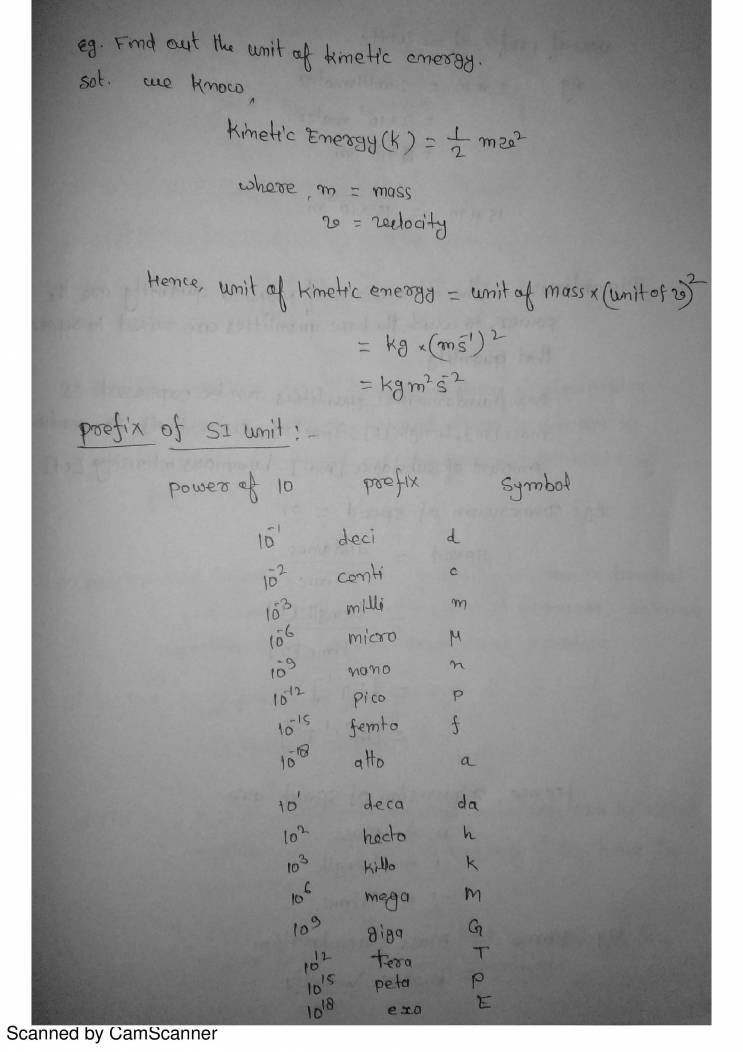 eg. Find out the unit of kinetic energy.
Sol. we know,
Kinetic Energy (K) = 1/2 mv²
where, m = mass
v = velocity
Hence, unit of kinetic energy = unit of mass × (unit of v)²
= kg × (ms⁻¹)²
= kg m² s⁻²
prefix of SI unit :-
power of 10 prefix Symbol
10⁻¹ deci d
10⁻² centi c
10⁻³ milli m
10⁻⁶ micro μ
10⁻⁹ nano n
10⁻¹² pico p
10⁻¹⁵ femto f
10⁻¹⁸ atto a
10¹ deca da
10² hecto h
10³ killo k
10⁶ mega M
10⁹ giga G
10¹² tera T
10¹⁵ peta P
10¹⁸ exa E
Scanned by CamScanner